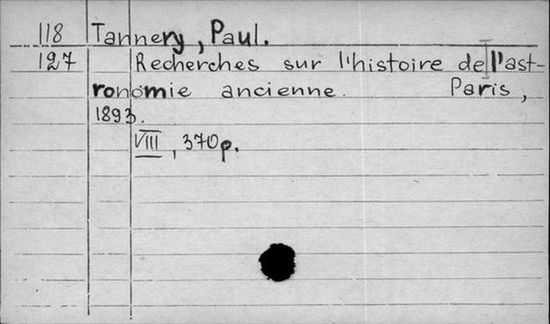 118 Tannery, Paul.
127 Recherches sur l'histoire de l'ast-
ronomie ancienne. Paris,
1893.
VIII, 370p.